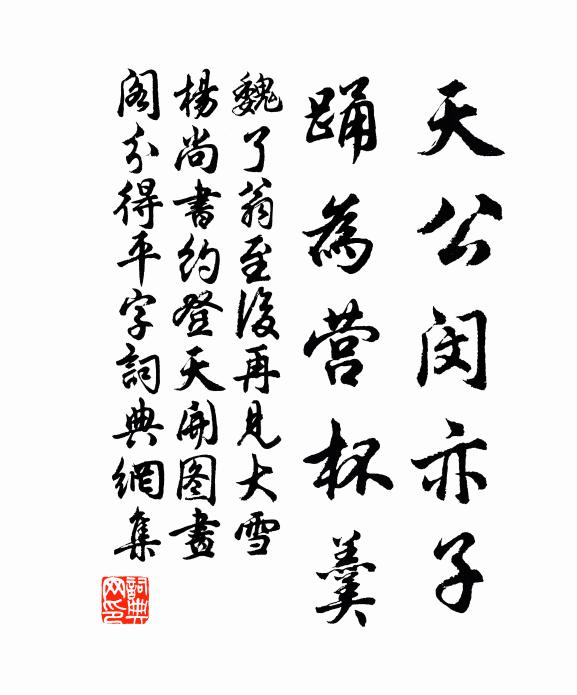 天公闵亦子
踊為营杯羹
魏了翁至後再見大雪
楊尚書約登天開图畫
阁分得平字詞典網集
詞典
网印